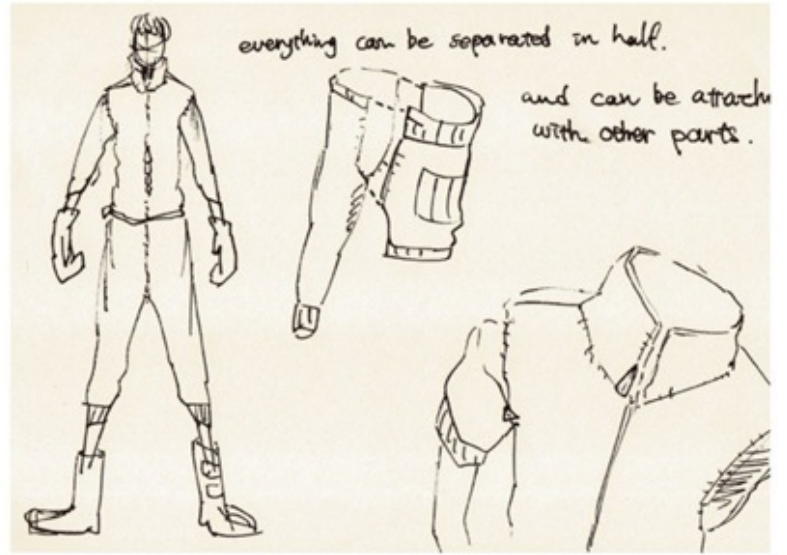 everything can be separated in half.
and can be attach
with other parts.